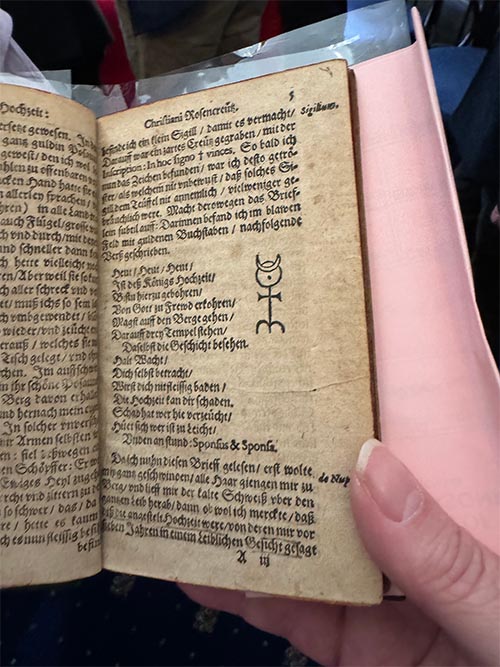 Hochzeit:
ersetzt gewesen. In de
gantz guldin Po
gewest/ den ich wol
len zu offenbaren
cken Hand hatte sie
allerley sprachen/
hren) in alle Land
auch Flügel/ grosse
ch vnd durch/ mit
nd schneller dann
hette vielleicht
ren/ Aber weil sie so
ch aller schreck vnd
t/ muß ich so sein
h vmbgewendet/
wieder/ vnd zeücht
erauß/ welches sie
Tisch gelegt/ vnd ohn
im. Im auffschwi
n jhr schöne Posaun
Berg davon erhall
nd hernach mein
In solcher vnvers
wir Armen selbsten
den: fiel schwegen
en Schöpffer: Er
Ewiges Heyl zugehe
cht vnd zittern zu de
so schwer/ das/ da
re/ hette es kaum
ch es nun fleissig be
besin
Christiani Rosencreütz.
5
befinde ich ein klein Sigill/ damit es vermacht/
Sigillum.
Darauff war ein zartes Creütz gegraben/ mit der
inscription: In hoc signo † vinces. So bald ich
nun das Zeichen befunden/ war ich desto getrö-
ster/ als welchem nit vnbewust/ daß solches Si-
gill dem Teüffel nit annemlich/ vielweniger ge-
bräuchlich were. Macht derowegen das Brief-
lein subeil auff: Darinnen befand ich im blawen
Feld mit guldenen Buchstaben/ nachfolgende
Verß geschrieben.
Heut/ Heut/ Heut/
Ist deß Königs Hochzeit/
Bistu hierzu gebohren/
Von Gott zu Frewd erkohren/
Magst auff den Berge gehen/
Darauff drey Tempel stehen/
Daselbst die Geschicht besehen.
Halt Wacht/
Dich selbst betracht/
Wirst dich nit fleissig baden/
Die Hochzeit kan dir schaden.
Schad hat wer hie verzeücht/
Hüet sich wer ist zu Leicht/
Vnden an stund: Sponsus & Sponsa.
Da ich nuhn diesen Brieff gelesen/ erst wolte
de Nup
my gantz geschwinden/ alle Haar giengen mir zu
Berg/ vnd lieff mir der kalte Schweiß vber den
gantzen Leib herab/ dann ob wol ich merckte/ daß
diß die angestelt Hochzeit were/ von deren mir vor
sieben Jahren in einem Leiblichen Gesicht gesagt
A iij